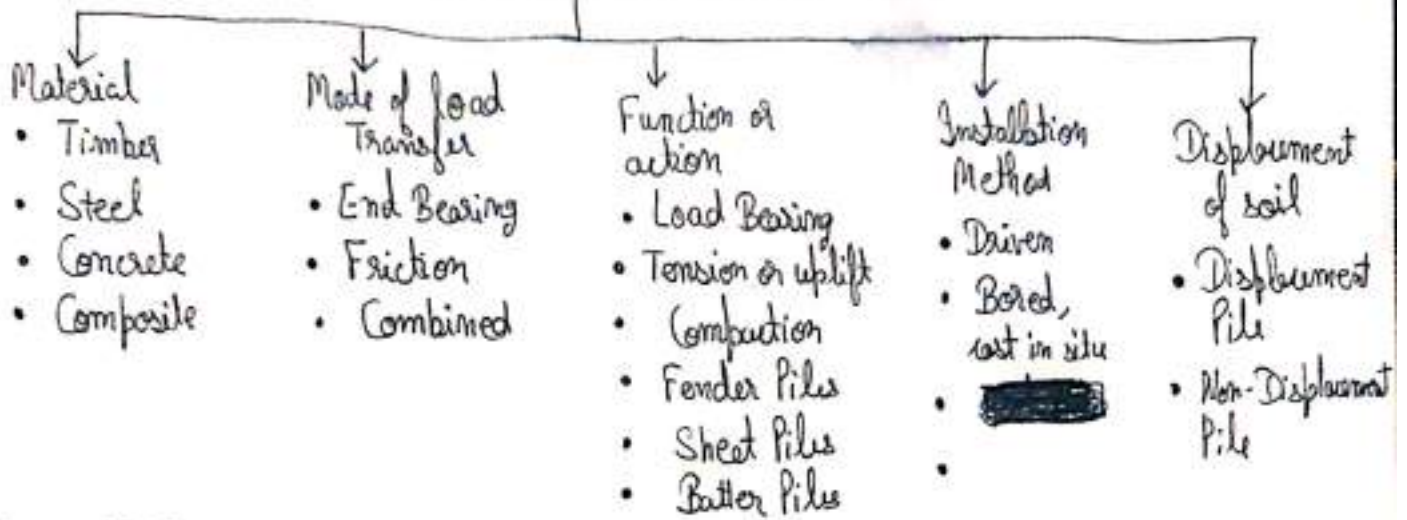 Material
• Timber
• Steel
• Concrete
• Composite
Mode of load
Transfer
• End Bearing
• Friction
• Combined
Function or
action
• Load Bearing
• Tension or uplift
• Compaction
• Fender Piles
• Sheet Piles
• Batter Piles
Installation
Method
• Driven
• Bored,
cast in situ
•
•
Displacement
of soil
• Displacement
Pile
• Non-Displacement
Pile